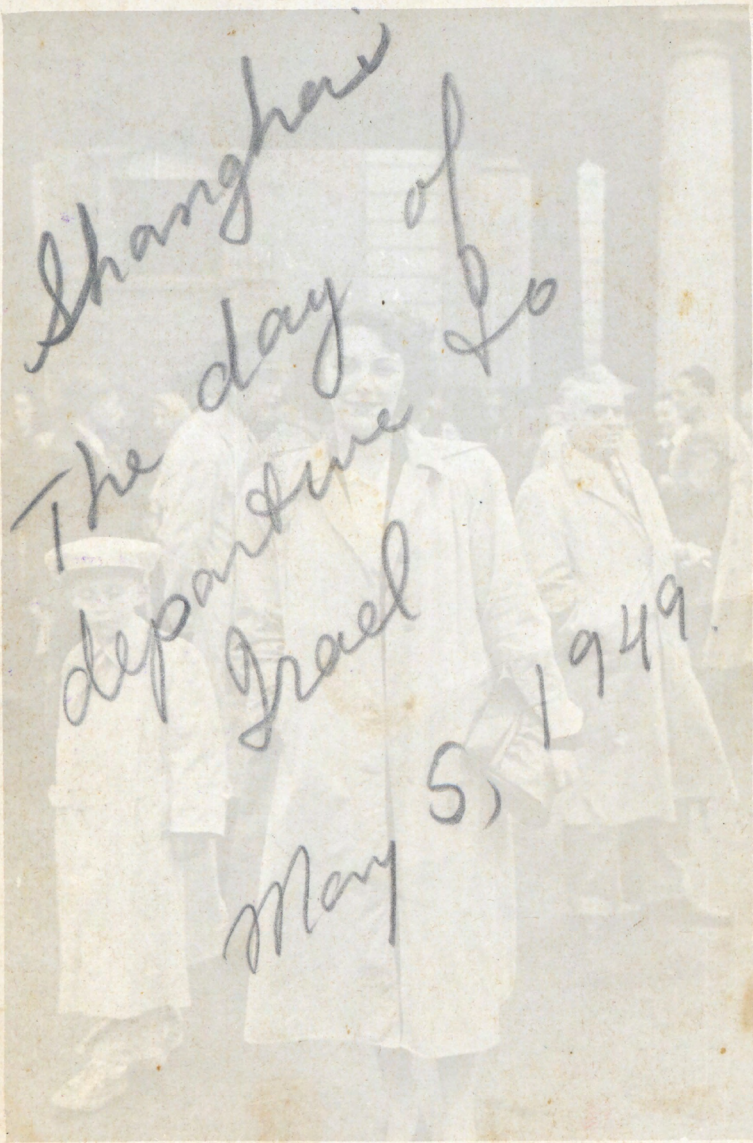 Shanghai
The day of
departure to
Israel
May 5, 1949